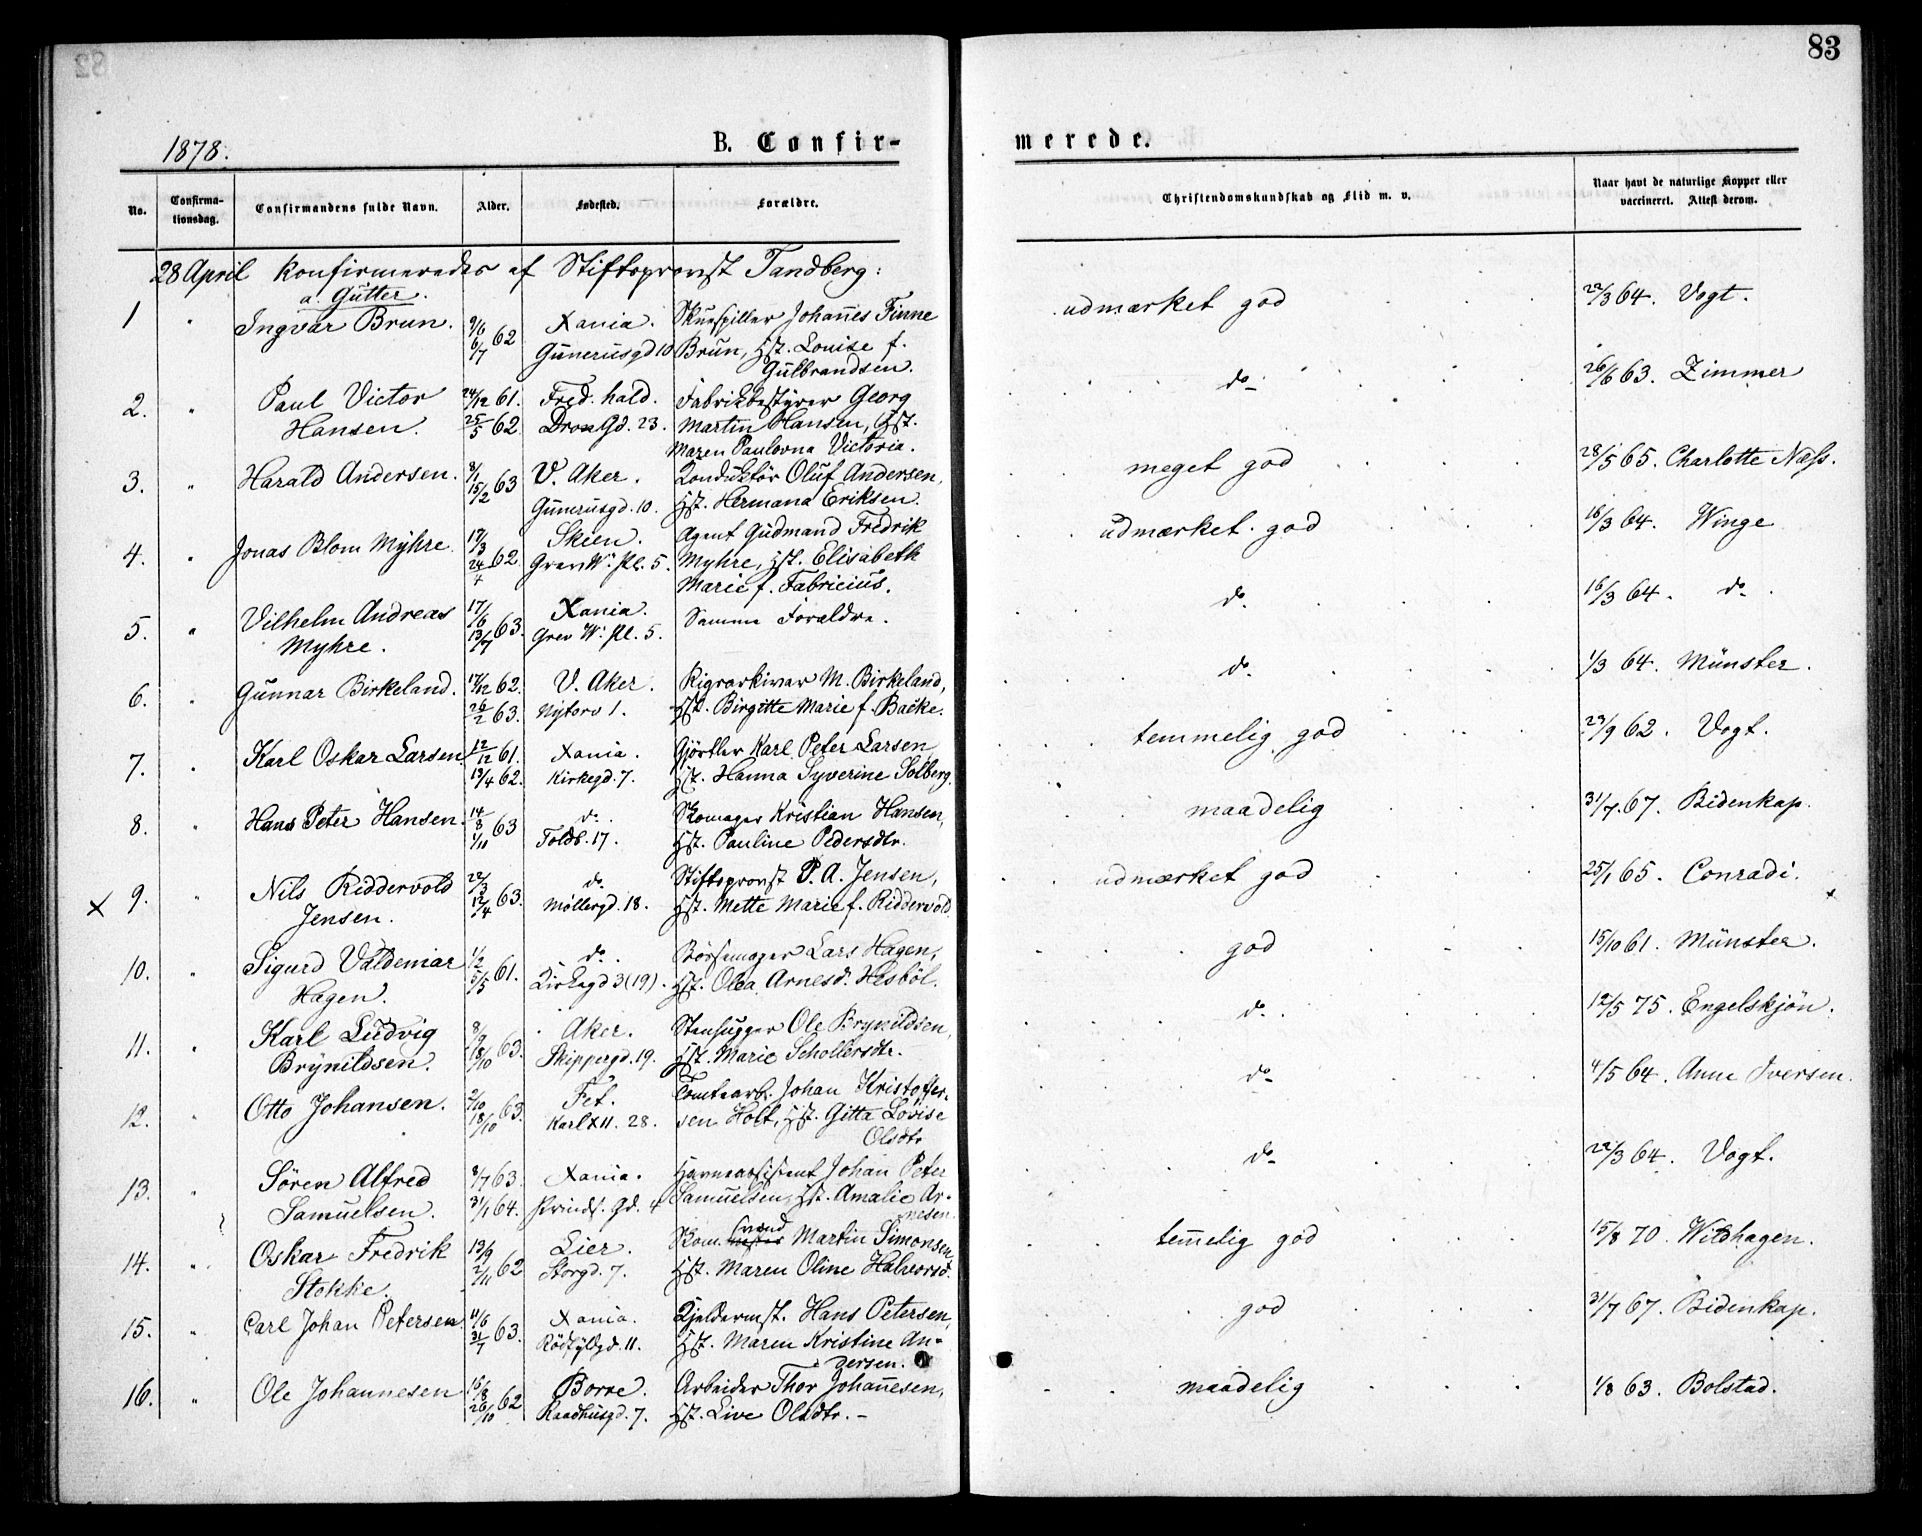 82
83
1878.
B. Confir-
merede.
No.
Confirma-
tionsdag.
Confirmandens fulde Navn.
Alder.
Fødested.
Forældre.
Christendomskundskab og Flid m. v.
Naar havt de naturlige Kopper eller
vaccineret. Attest derom.
28 April konfirmeredes af Stiftsprovst Tandberg:
a. Gutter.
1 " Ingvar Brun. 9/6 62 Xania. Skuespiller Johannes Finne udmærket god 22/3 64. Vogt.
6/7 Gunerusgd 10 Brun, Hst. Louise f.
Gulbrandsen.
2. " Paul Victor 24/12 61. Fred. hald. Fabrikbestyrer Georg do 26/6 63. Zimmer
Hansen. 25/5 62. Dron Gd. 23. Martin Hansen, Hst.
Maren Paulovna Victoria.
3. " Harald Andersen. 8/1 63 V. Aker. Konduktör Oluf Andersen, meget god 28/5 65. Charlotte Næss.
15/2 Gunerusgd. 10. Hst. Hermana Eriksen.
4. " Jonas Blom Myhre 17/3 62. Skien. Agent Gudmand Fredrik udmærket god 16/3 64. Winge
24/4 Grev W. Pl. 5. Myhre, Hst. Elisabeth
Marie f. Fabricius.
5. " Vilhelm Andreas 17/6 63. Xania. Samme Foraldre. do. 16/3 64. do.
Myhre. 13/7 Grev W. Pl. 5.
6. " Gunnar Birkeland. 17/12 62. V. Aker. Rigsarkivar M. Birkeland, do. 1/3 64. Münster.
26/2 63. Nytorv 1. Hst. Birgitte Marie f. Backe.
7. " Karl Oskar Larsen 12/12 61. Xania. Gjörtler Karl Peter Larsen, temmelig god 23/9 62. Vogt.
13/4 62. Kirkegd. 7. Hst. Hanna Syverine Solberg.
8. " Hans Peter Hansen. 14/8 63 do. Skomager Kristian Hansen, maadelig 31/7. 67. Bidenkap.
1/11 Toldb. 17. Hst. Pauline Pedersdtr.
x 9. " Nils Riddervold 22/3 63. do. Stiftsprovst P. A. Jensen, udmærket god 25/1 65. Conradi.
Jensen. 12/4 Möllergd. 18. Hst. Mette Marie f. Riddervold
10. " Sigurd Valdemar 1/2 61. do. Börsemager Lars Hagen, god 15/10 61. Münster.
Hagen. 5/5 Kirkegd 3 (19). Hst. Olea Arnesd. Hesböl.
11. " Karl Ludvig 8/9 63. Aker. Stenhugger Ole Brynildsen, do. 12/5 75. Engelskjön.
Brynildsen. 18/10 Skippergd. 19. Hst. Marie Schollersdtr.
12. Otto Johansen. 2/10 63. Fet. Tomtearb. Johan Kristoffer- do 4/5 64. Anne Iversen.
18/10 Karl XII. 28. sen Holt, Hst. Gitta Lovise
Olsdtr
13. " Sören Alfred 8/7 63. Xania. Havneassistent Johan Peter do 22/3 64. Vogt.
Samuelsen. 31/1 64. Prinds. Gd. 4 Samuelsen, Hst. Amalie Ar-
nesen.
14. " Oskar Fredrik 13/9 62 Lier. Svend Martin Simonsen temmelig god 15/8 70. Wildhagen.
Stokke. 2/11 Storgd. 7. Hst. Maren Oline Halvorsd.
15. " Carl Johan Petersen 11/6 63. Xania. Kjeldermst. Hans Petersen, god 31/7 67. Bidenkap.
21/7 Rödfyldgd. 11. Hst. Maren Kristine An-
dersen.
16. " Ole Johannesen 15/8 62 Borre. Arbeider Thor Johannesen, maadelig 1/8 63. Bolstad.
26/10 Raadhusgd. 7. Hst. Live Olsdtr. -